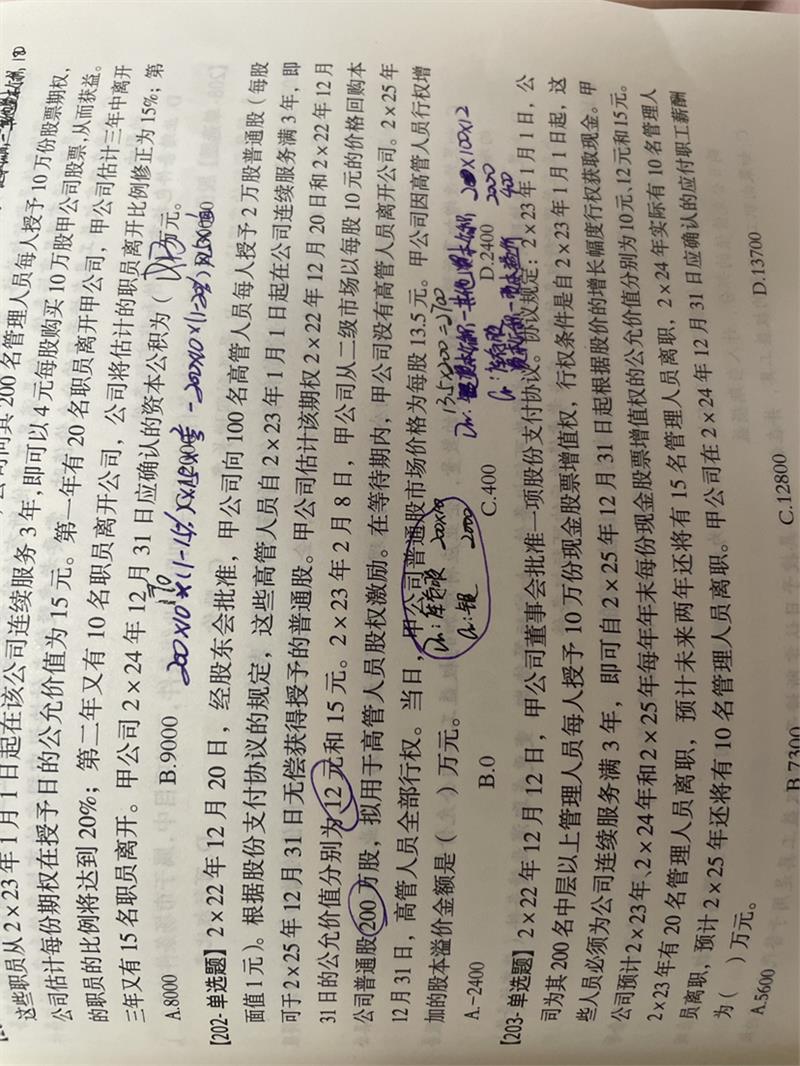 公司向其 200 名管理人员每人授予 10 万份股票期权,
这些职员从 2×23 年 1 月 1 日起在该公司连续服务 3 年,即可以 4 元每股购买 10 万股甲公司股票,从而获益。
公司估计每份期权在授予日的公允价值为 15 元。第一年有 20 名职员离开甲公司,甲公司估计三年中离开
的职员的比例将达到 20%；第二年又有 10 名职员离开公司,公司将估计的职员离开比例修正为 15%；第
三年又有 15 名职员离开。甲公司 2×24 年 12 月 31 日应确认的资本公积为（ ）万元。
A.8000 B.9000
【202-单选题】2×22 年 12 月 20 日，经股东会批准，甲公司向 100 名高管人员每人授予 2 万股普通股（每股
面值 1 元）。根据股份支付协议的规定，这些高管人员自 2×23 年 1 月 1 日起在公司连续服务满 3 年，即
可于 2×25 年 12 月 31 日无偿获得授予的普通股。甲公司估计该期权 2×22 年 12 月 20 日和 2×22 年 12 月
31 日的公允价值分别为 12 元和 15 元。2×23 年 2 月 8 日，甲公司从二级市场以每股 10 元的价格回购本
公司普通股 200 万股，拟用于高管人员股权激励。在等待期内，甲公司没有高管人员离开公司。2×25 年
12 月 31 日，高管人员全部行权。当日，甲公司普通股市场价格为每股 13.5 元。甲公司因高管人员行权增
加的股本溢价金额是（ ）万元。
13.5×200=2700
200×100×12
200×10
2000
2000
400
A.-2400 B.0 C.400 D.2400
【203-单选题】2×22 年 12 月 12 日，甲公司董事会批准一项股份支付协议。协议规定：2×23 年 1 月 1 日，公
司为其 200 名中层以上管理人员每人授予 10 万份现金股票增值权，行权条件是自 2×23 年 1 月 1 日起，这
些人员必须为公司连续服务满 3 年，即可自 2×25 年 12 月 31 日起根据股价的增长幅度行权获取现金。甲
公司预计 2×23 年、2×24 年和 2×25 年每年年末每份现金股票增值权的公允价值分别为 10 元、12 元和 15 元。
2×23 年有 20 名管理人员离职，预计未来两年还将有 15 名管理人员离职，2×24 年实际有 10 名管理人
员离职，预计 2×25 年还将有 10 名管理人员离职。甲公司在 2×24 年 12 月 31 日应确认的应付职工薪酬
为（ ）万元。
A.5600 B.7300 C.12800 D.13700